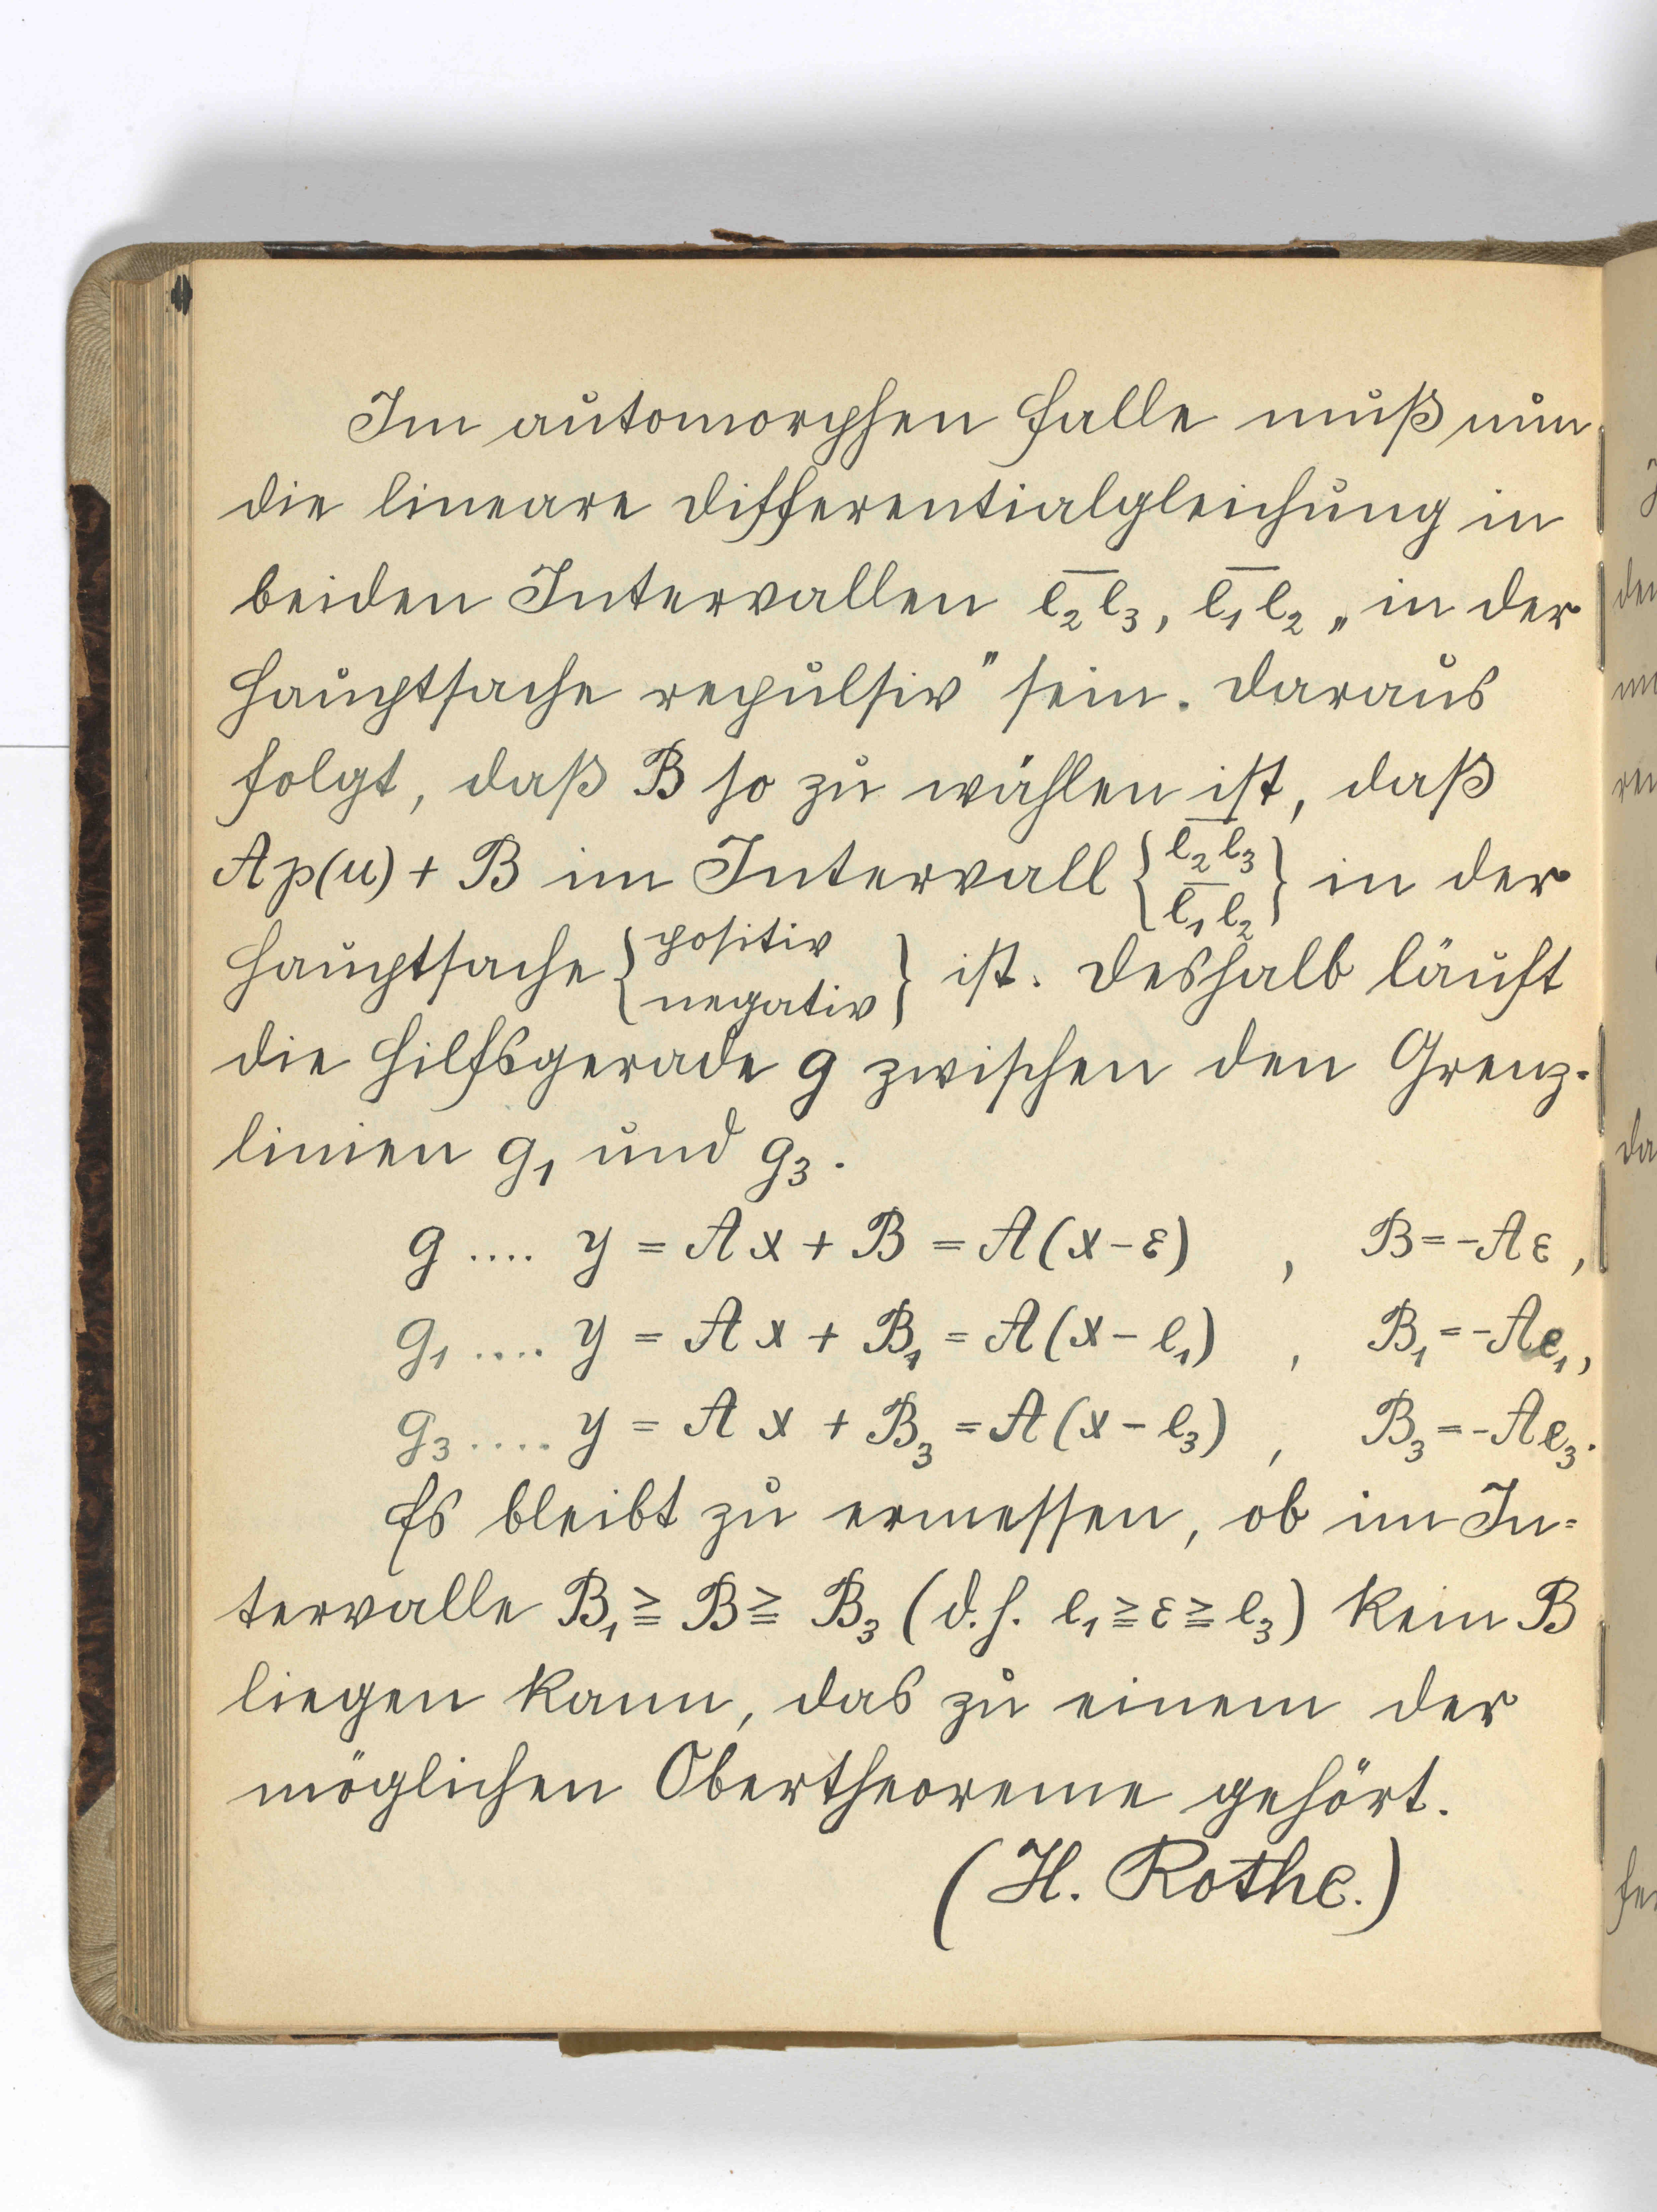 Im automorphen Falle muß nun
die lineare Differentialgleichung in
beiden Intervallen e̅₂e̅₃, e̅₁e̅₂ „in der
Hauptsache repulsiv" sein. Daraus
folgt, daß B so zu wählen ist, daß
A p(u) + B im Intervall { e̅₂e̅₃ / e̅₁e̅₂ } in der
Hauptsache { positiv / negativ } ist. Deshalb läuft
die Hilfsgerade g zwischen den Grenz-
linien g₁ und g₃.
g .... y = Ax + B = A(x-ε) , B = -Aε,
g₁ .... y = Ax + B₁ = A(x-e₁) , B₁ = -Ae₁,
g₃ ..... y = Ax + B₃ = A(x-e₃) , B₃ = -Ae₃.
Es bleibt zu ermessen, ob im In=
tervalle B₁ ≧ B ≧ B₃ (d.h. e₁ ≧ ε ≧ e₃) kein B
liegen kann, das zu einem der
möglichen Obertheoreme gehört.
(H. Rothe.)